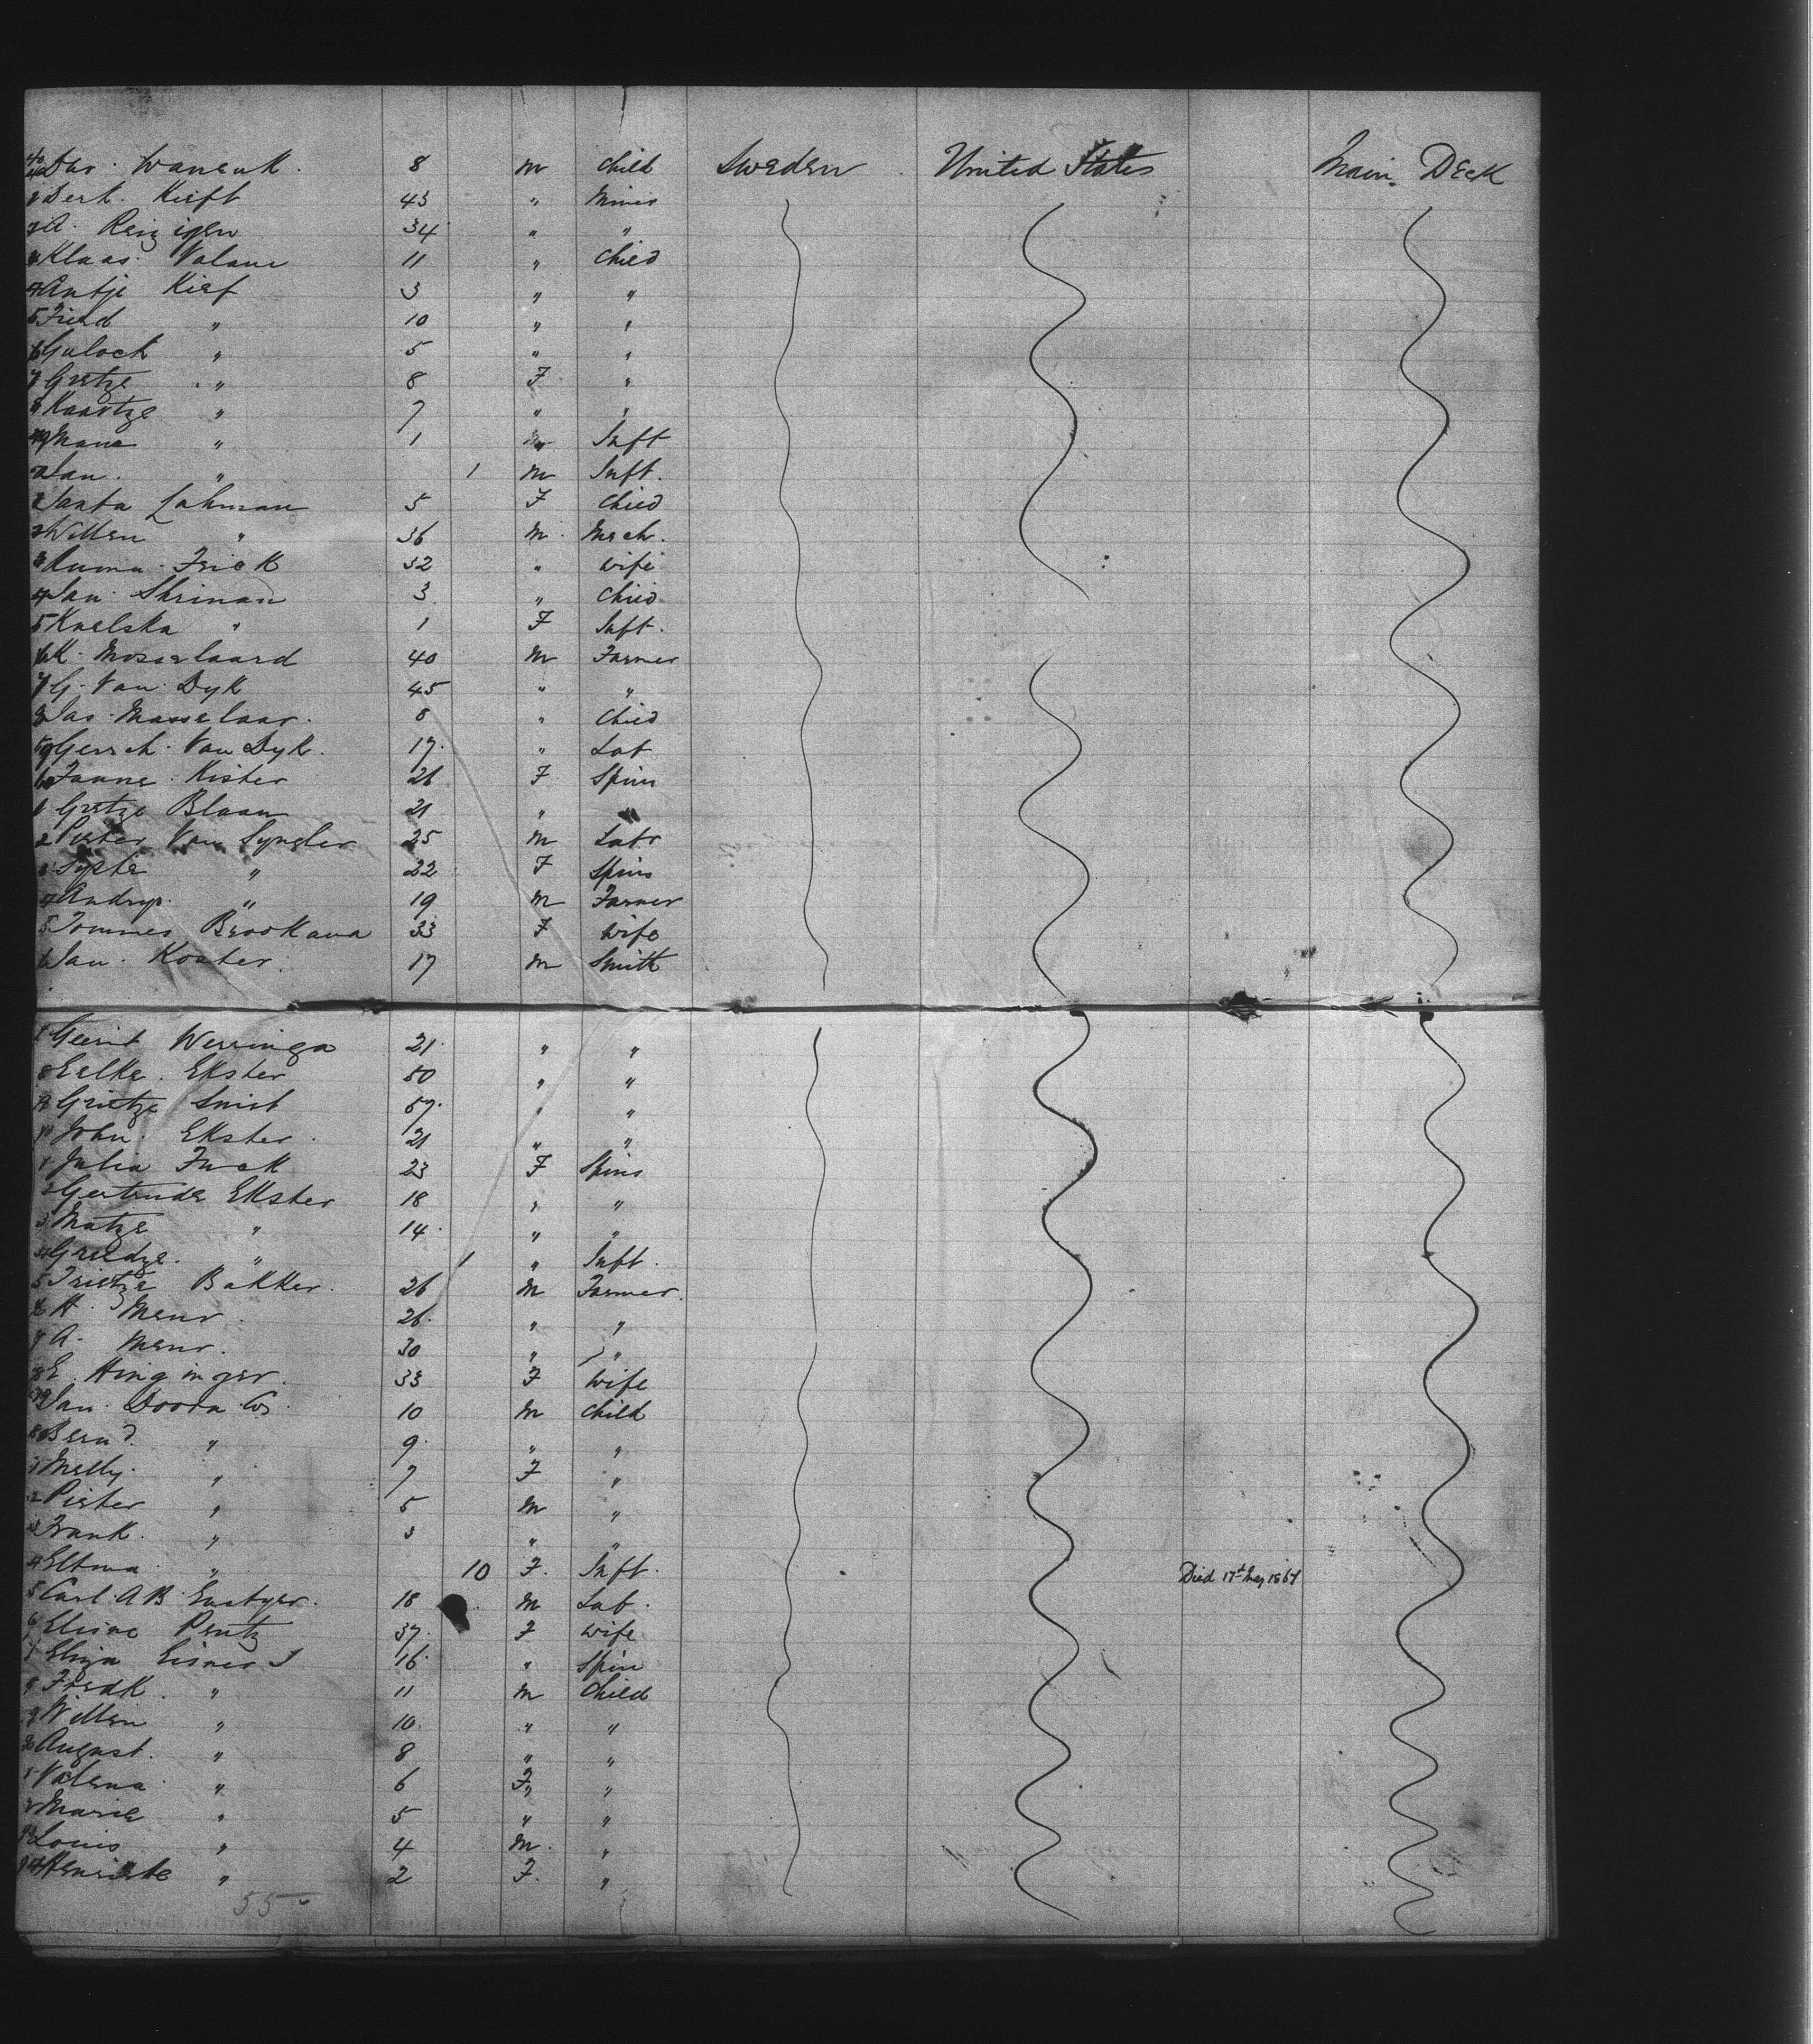 40 Wanenk. 8 m Child Sweden United States Main Deck
1 Derk. Kieft 43 " Miner
2 A. Reizigen 34 " "
3 Klaas Valane 11 " Chied
4 Antje Kief 3 " "
5 Fried " 10 " "
6 Guloch " 5 " "
7 Gretze " 8 F "
8 Kaartze " 7 " "
49 Mana " 1 " Inft
50 Jan. " 1 m Inft.
1 Janta Lahman 5 F Chied
2 Willen " 36 m. Mech.
3 Anima Frick 32 " wife
4 Jan Shrinan 3 " Chied
5 Knelska " 1 F Inft.
6 K. Mosselaard 40 m Farmer
7 G. Van Dyk 45 " "
8 Jas Masselaar. 8 " Chied
59 Gerrch. Van Dyk. 17. " Lab
60 Janne Kister 26 F Spins
1 Gretze Blaan 21 " "
2 Pieter Van Syngler 25 m Labr
3 Syske " 22 F Spins
4 Andrys. " 19 m Farmer
5 Tommes Brookana 33 F wife
6 Jan. Koster. 17 m Smith
7 Geerit Werringa 21. " "
8 Eelke. Ekster 50 " "
9 Grietze Smit 57. " "
70 John. Ekster. 21 " "
1 Julia Fuck 23 F Spins
2 Gertruda Ekster 18 " "
3 Matze " 14. " "
4 Greedze. " 1 " Inft.
5 Trietze Bakker. 26 m Farmer.
6 H. Menr. 26. " "
7 A. Menr. 30 " "
8 E. Hinginger. 33 F wife
79 Jan. Doorn Co. 10 m Child
80 Bernd. " 9. " "
1 Melly. " 7 F "
2 Pieter " 5 m "
3 Frank. " 3 " "
4 Eltina " 10 F. Inft. Died 17th May 1867
5 Carl. A B Eastger. 18 m Lab.
6 Elisne Pentz 37. F wife
7 Eliza Eisner S 16. " Spin
8 Fredk. " 11 m Child
9 Willen " 10. " "
90 August. " 8 " "
1 Valerna " 6 F " "
2 Marie " 5 " "
93 Louis " 4 m. "
94 Henriete " 2 F. "
55